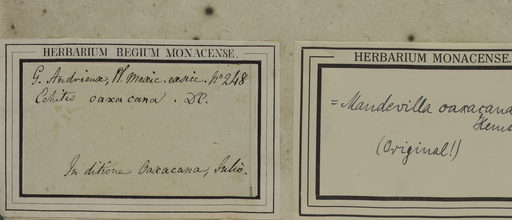 HERBARIUM REGIUM MONACENSE.
G. Andrieux, Pl. Mexic. exsicc. No 248
Echites oaxacana. DC.
In ditione Oaxacana, Julio.
HERBARIUM MONACENSE.
= Mandevilla oaxacana
Hems
(Original!)